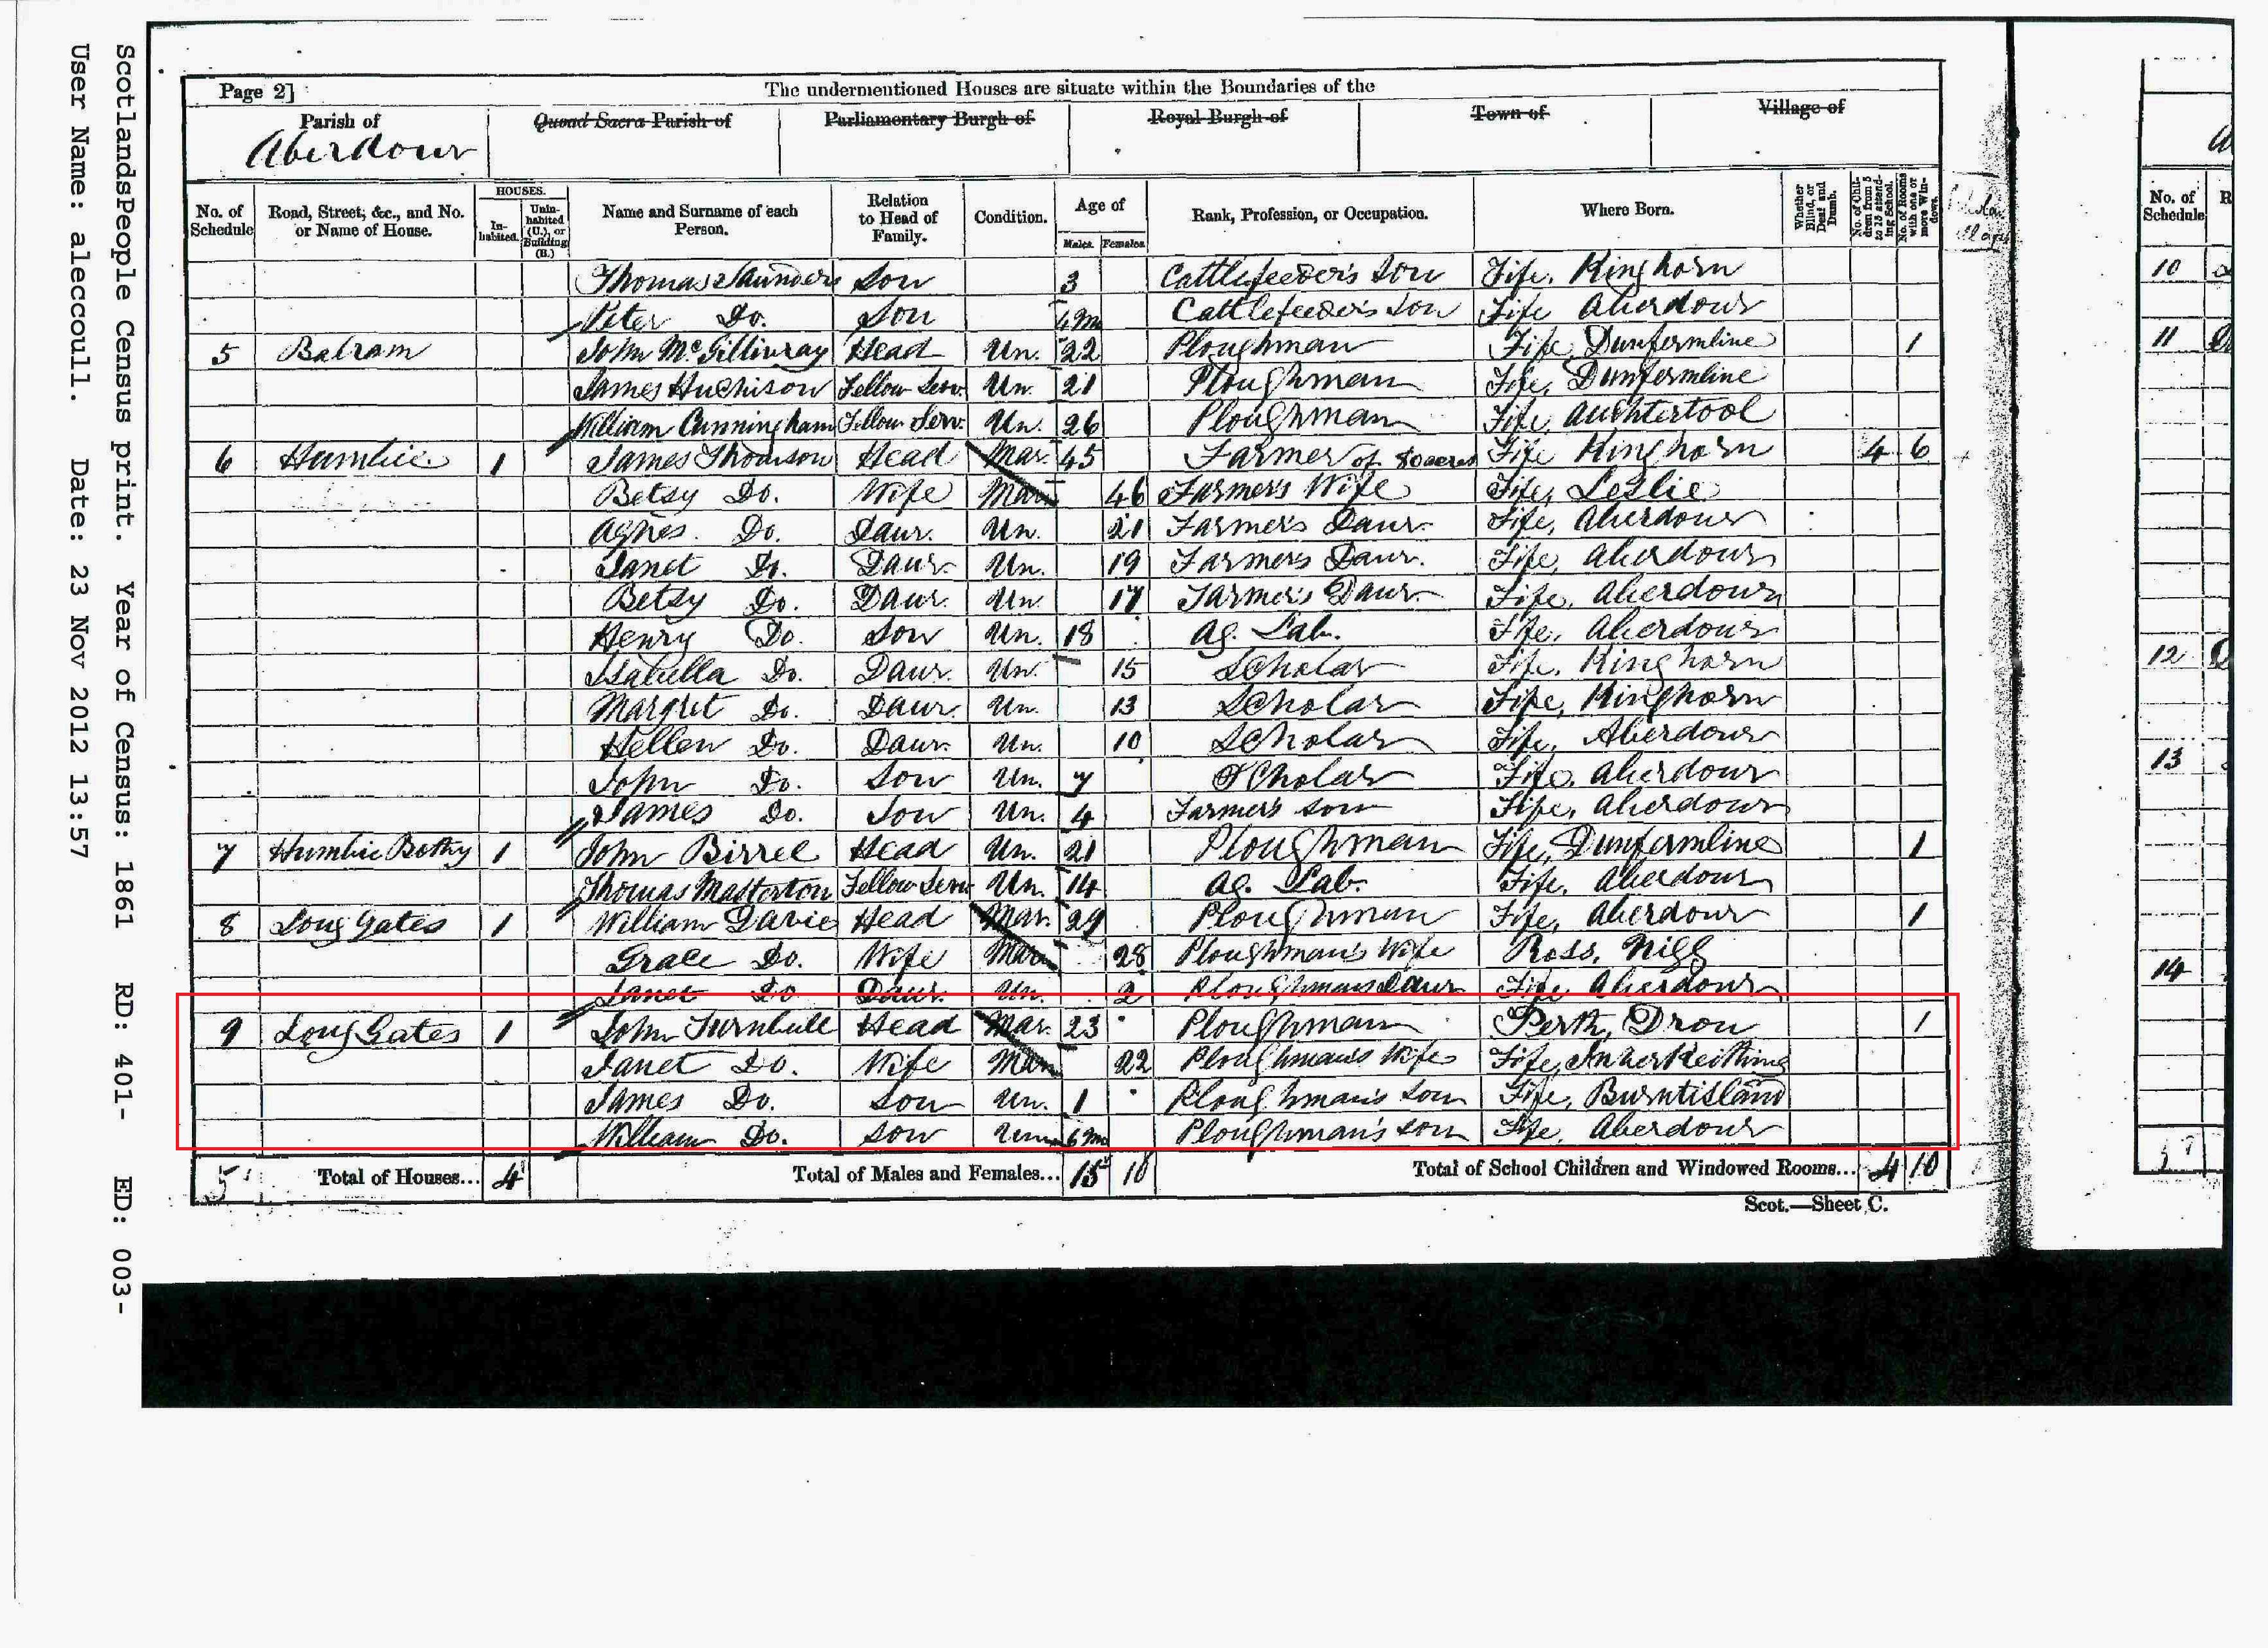 ScotlandsPeople Census print. Year of Census: 1861 RD: 401- ED: 003-
User Name: aleccoull. Date: 23 Nov 2012 13:57
Page 2] The undermentioned Houses are situate within the Boundaries of the
Parish of Quoad Sacra Parish of Parliamentary Burgh of Royal Burgh of Town of Village of
Aberdour
No. of Schedule Road, Street, &c., and No. or Name of House. HOUSES. Inhabited. Uninhabited (U.), or Building (B.) Name and Surname of each Person. Relation to Head of Family. Condition. Age of Males. Females. Rank, Profession, or Occupation. Where Born. Whether Blind, or Deaf and Dumb. No. of Children from 5 to 15 attending School. No. of Rooms with one or more Windows.
Thomas Saunders Son 3 Cattlefeeder's Son Fife, Kinghorn
Peter Do. Son 4m Cattlefeeder's Son Fife Aberdour
5 Balram John McGillivray Head Un. 22 Ploughman Fife, Dunfermline 1
James Huchison Fellow Serv. Un. 21 Ploughman Fife, Dunfermline
William Cunningham Fellow Serv. Un. 26 Ploughman Fife, Auchtertool
6 Humbie 1 James Thomson Head Mar. 45 Farmer of 80 acres Fife Kinghorn 4 6
Betsy Do. Wife Mar. 46 Farmer's Wife Fife, Leslie
Agnes Do. Daur. Un. 21 Farmer's Daur. Fife, Aberdour
Janet Do. Daur. Un. 19 Farmer's Daur. Fife, Aberdour
Betsy Do. Daur. Un. 17 Farmer's Daur. Fife, Aberdour
Henry Do. Son Un. 18 Ag. Lab. Fife, Aberdour
Isabella Do. Daur. Un. 15 Scholar Fife, Kinghorn
Margret Do. Daur. Un. 13 Scholar Fife, Kinghorn
Hellen Do. Daur. Un. 10 Scholar Fife, Aberdour
John Do. Son Un. 7 Scholar Fife, Aberdour
James Do. Son Un. 4 Farmer's son Fife, Aberdour
7 Humbie Bothy 1 John Birrel Head Un. 21 Ploughman Fife, Dunfermline 1
Thomas Masterton Fellow Serv. Un. 14 Ag. Lab. Fife, Aberdour
8 Long Gates 1 William Davie Head Mar. 29 Ploughman Fife, Aberdour 1
Grace Do. Wife Mar. 28 Ploughman's Wife Ross, Nigg
Janet Do Daur. Un. 2 Ploughmans Daur Fife Aberdour
9 Long Gates 1 John Turnbull Head Mar. 23 Ploughman Perth, Dron 1
Janet Do. Wife Mar. 22 Ploughman's Wife Fife, Inverkeithing
James Do. Son Un. 1 Ploughman's Son Fife, Burntisland
William Do. Son Un. 6m Ploughman's son Fife, Aberdour
5 Total of Houses... 4 Total of Males and Females... 15 10 Total of School Children and Windowed Rooms... 4 10
Scot.—Sheet C.
No. of Schedule
10
11
12
13
14